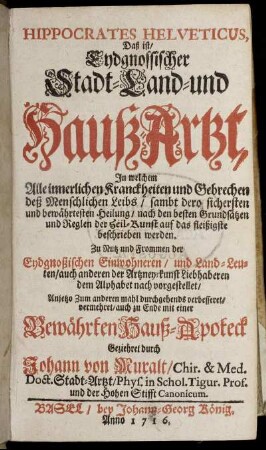 HIPPOCRATES HELVETICUS,
Daß ist/
Eydgnossischer
Stadt-Land-und
Hauß-Artzt,
In welchem
Alle innerlichen Kranckheiten und Gebrechen
deß Menschlichen Leibs/ sambt dero sichersten
und bewährtesten Heilung/ nach den besten Grundsätzen
und Reglen der Heil-Kunst auf das fleißigste
beschrieben werden.
Zu Nutz und Frommen der
Eydgnoßischen Einwohneren/ und Land-Leu-
ten/ auch anderen der Artzney-kunst Liebhaberen
dem Alphabet nach vorgestellet/
Anjetzo Zum anderen mahl durchgehends verbesseret/
vermehret/ auch zu Ende mit einer
Bewährten Hauß-Apoteck
Geziehret durch
Johann von Muralt/ Chir. & Med.
Doct. Stadt-Artzt/ Phys. in Schol. Tigur. Prof.
und der Hohen Stifft Canonicum.
BASEL/ bey Johann-Georg König,
Anno 1716.